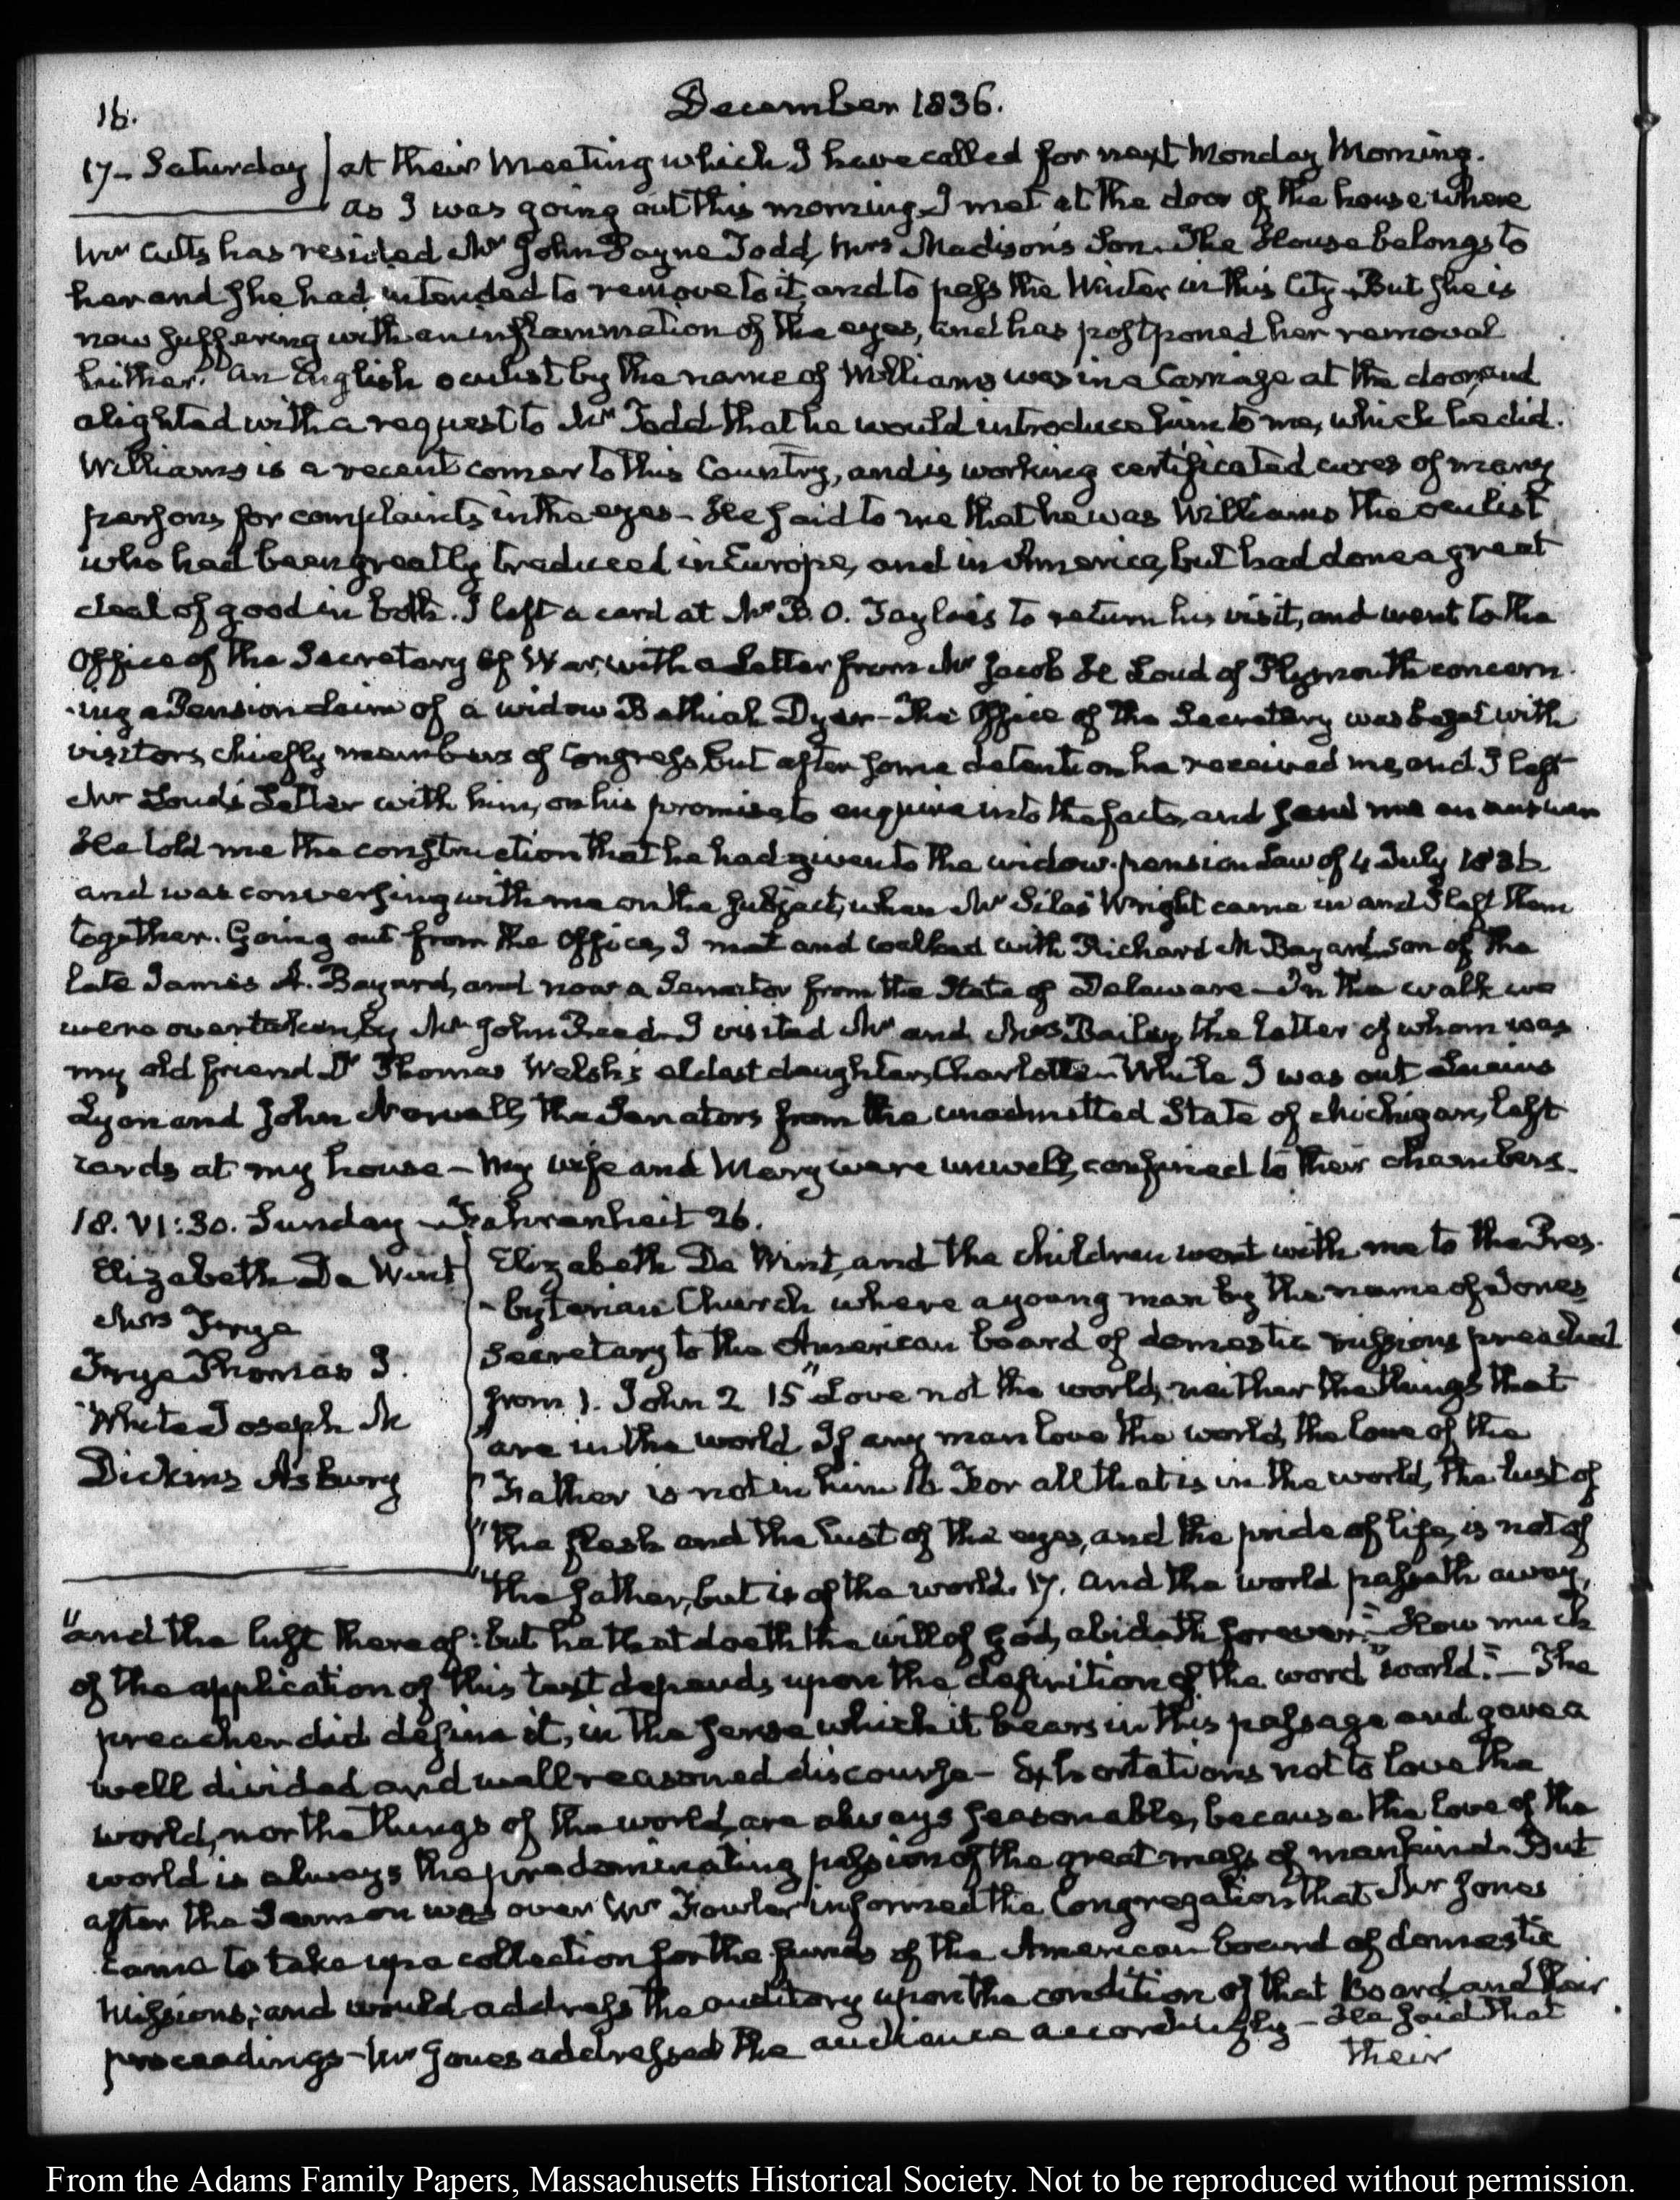 16.
December 1836.
17 – Saturday | at their Meeting which I have called for next Monday Morning.
As I was going out this morning I met at the door of the house where
Mr Cutts has resided Mr John Payne Todd, Mrs Madison's Son. The House belongs to
her and she had intended to remove to it, and to pass the Winter in this City. But she is
now suffering with an inflammation of the eyes, and has postponed her removal
hither. An English oculist by the name of Williams was in a Carriage at the door, and
alighted with a request to Mr Todd that he would introduce him to me, which he did.
Williams is a recent comer to this Country, and is working certificated cures of many
persons for complaints in the eyes – He said to me that he was Williams the oculist
who had been greatly traduced in Europe, and in America, but had done a great
deal of good in both. I left a card at Mr B. O. Tayloe's to return his visit, and went to the
Office of the Secretary of War, with a Letter from Mr Jacob H Loud of Plymouth concern-
-ing a Pension claim of a widow Bethiah Dyer – The Office of the Secretary was beset with
visitors, chiefly members of Congress, but after some detention he received me, and I left
Mr Loud's Letter with him, on his promise to enquire into the facts, and send me an answer
He told me the construction that he had given to the widow-pension Law of 4 July 1836
and was conversing with me on the subject, when Mr Silas Wright came in and I left them
together. Going out from the Office, I met and walked with Richard H Bayard, son of the
late James A. Bayard, and now a Senator from the State of Delaware – In the walk we
were overtaken by Mr John Reed – I visited Mr and Mrs Bailey, the latter of whom was
my old friend Dr Thomas Welsh's eldest daughter, Charlotte – While I was out Lucius
Lyon and John Norvell, the Senators from the unadmitted State of Michigan, left
cards at my house – My wife and Mary were unwell, confined to their chambers.
18. VI:30. Sunday – Fahrenheit 26.
Elizabeth De Wint
Mrs Frye
Frye Thomas I.
White Joseph M
Dickins Asbury
Elizabeth De Wint, and the children went with me to the Pres-
-byterian Church where a young man by the name of Jones
Secretary to the American board of domestic missions preached
from 1. John 2 15 "Love not the world, neither the things that
"are in the world. If any man love the world, the love of the
"Father is not in him 16 For all that is in the world, the lust of
"the flesh and the lust of the eyes, and the pride of life, is not of
"the father, but is of the world. 17. And the world passeth away,
"and the lust thereof: but he that doeth the will of God, abideth forever." – How much
of the application of this text depends upon the definition of the word "world." – The
preacher did define it, in the sense which it bears in this passage and gave a
well divided and well reasoned discourse – Exhortations not to love the
world, nor the things of the world, are always seasonable, because the love of the
world is always the predominating passion of the great mass of mankind. But
after the Sermon was over Mr Fowler informed the Congregation that Mr Jones
came to take up a collection for the funds of the American board of domestic
Missions; and would address the auditory upon the condition of that Board and their
proceedings – Mr Jones addressed the audience accordingly – He said that
their
From the Adams Family Papers, Massachusetts Historical Society. Not to be reproduced without permission.